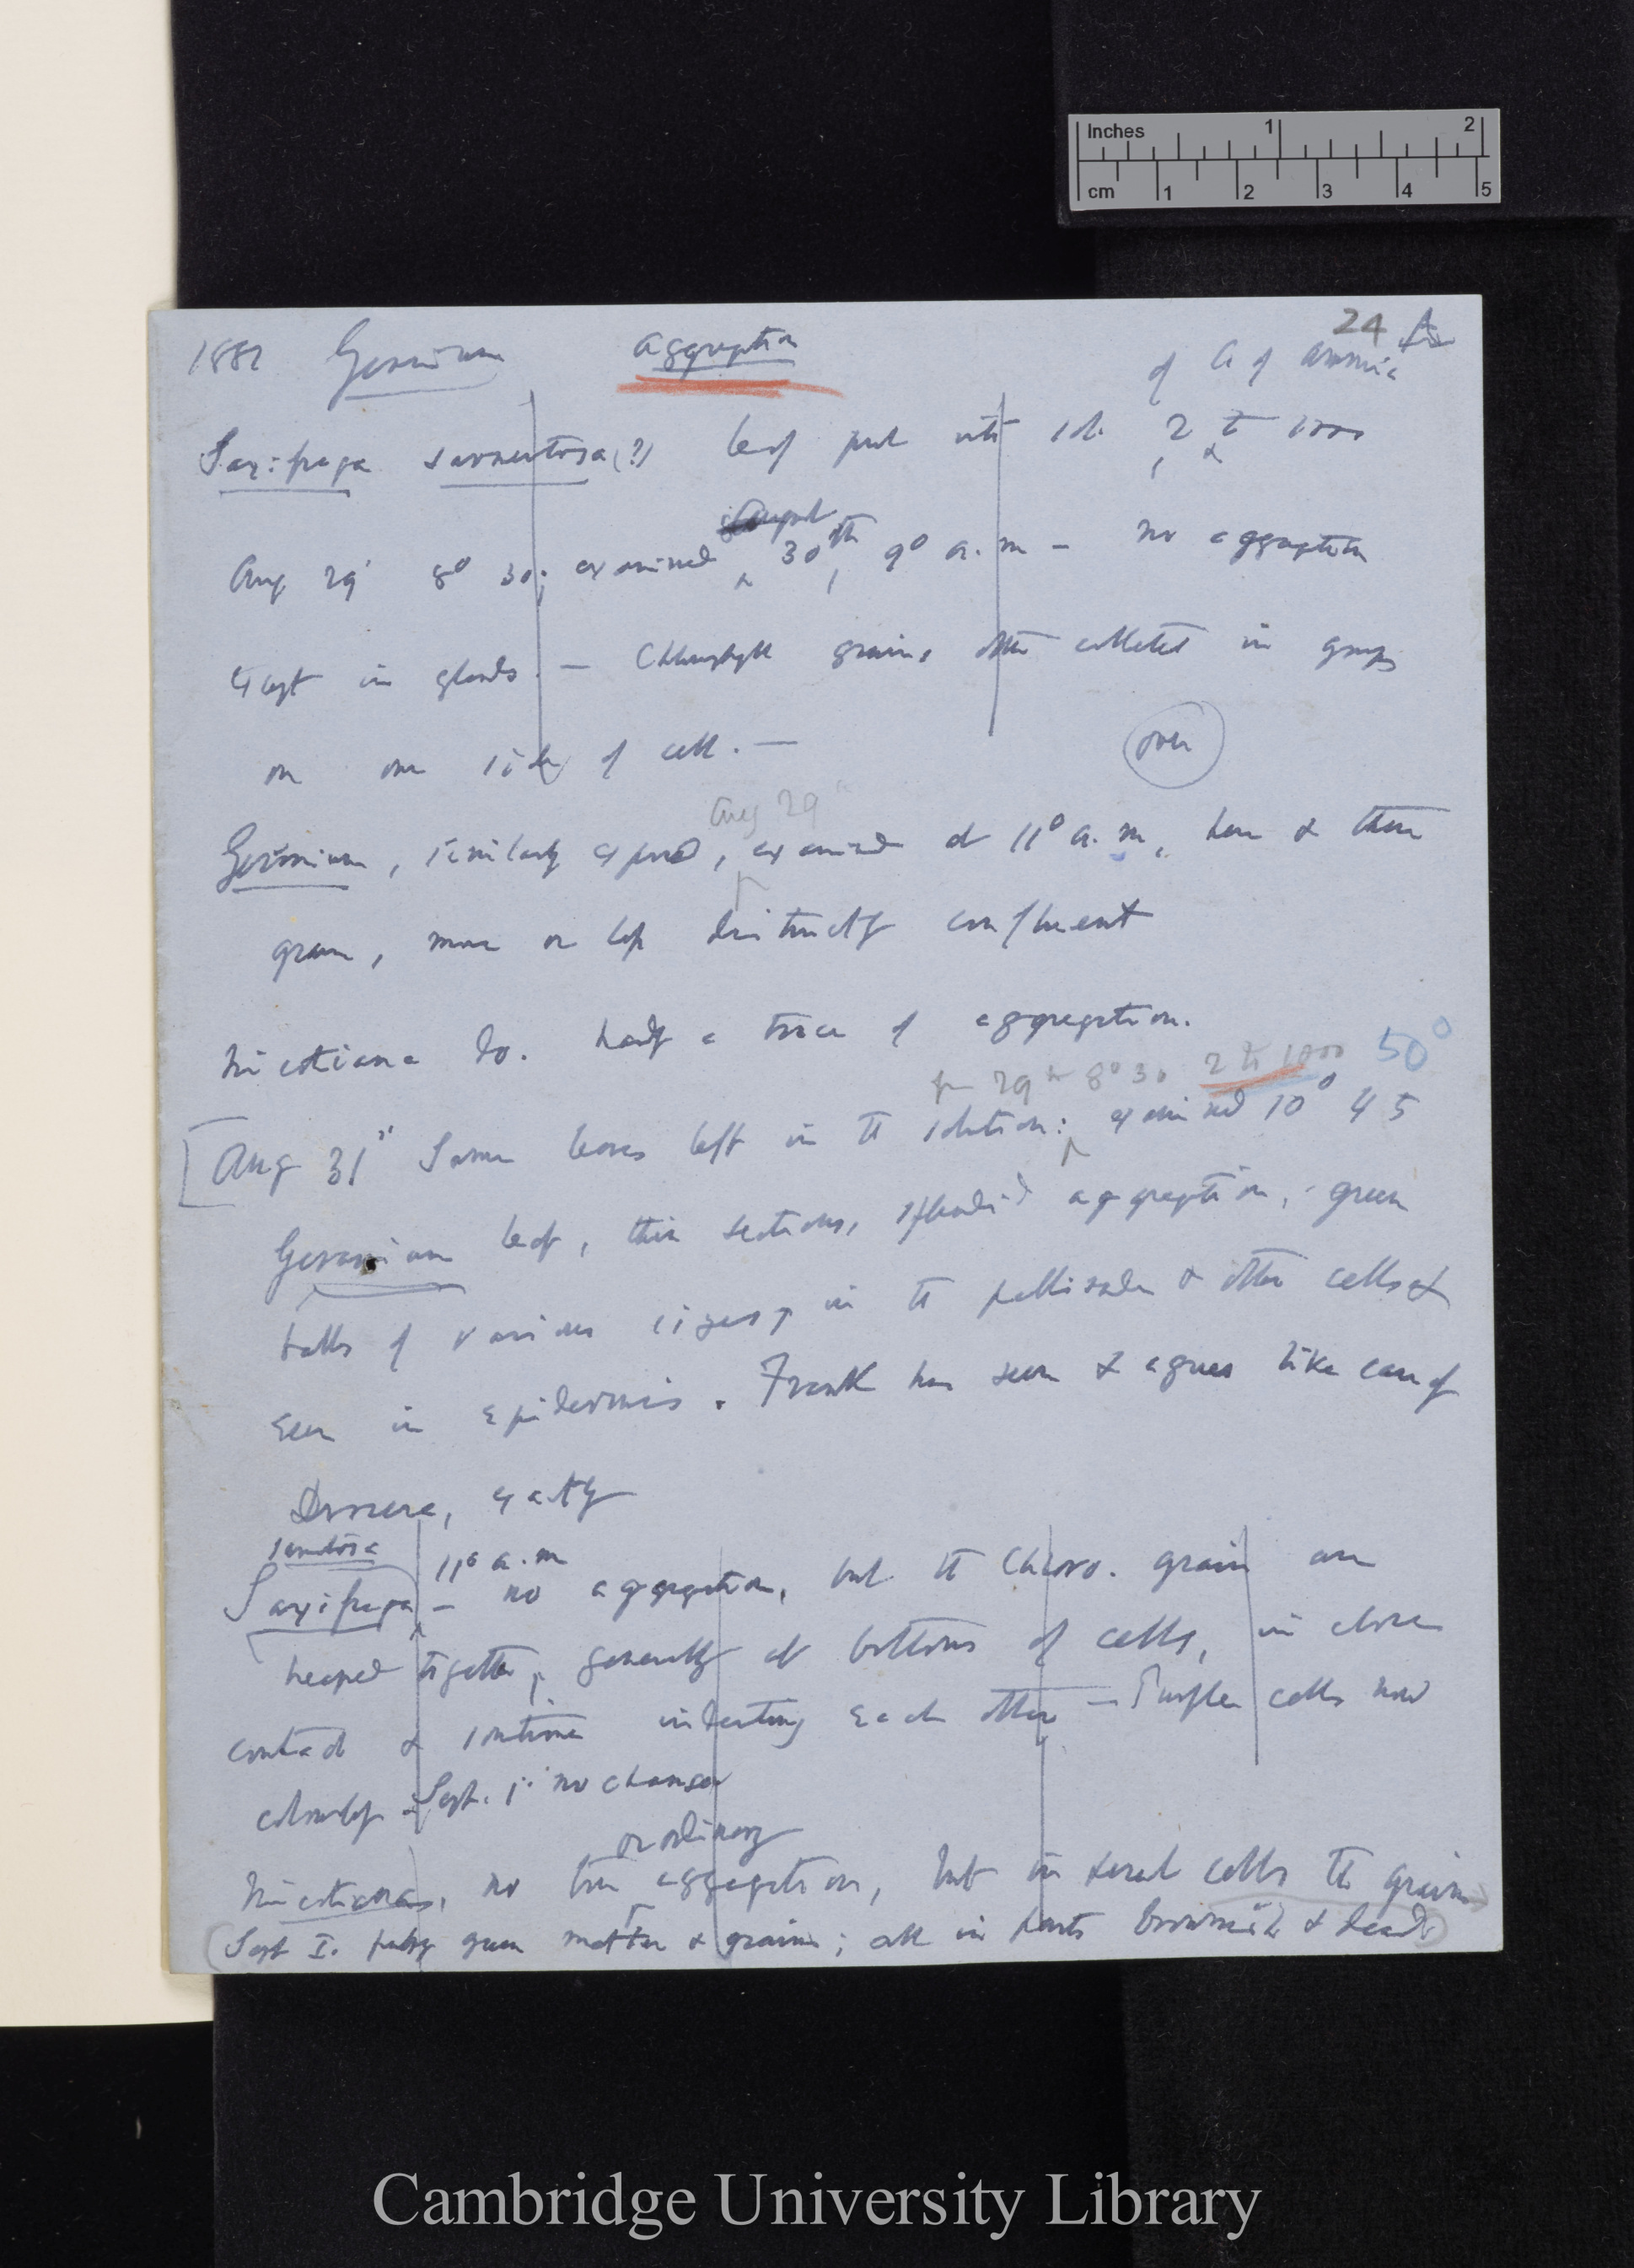 Inches 1 2
cm 1 2 3 4 5
24
1881 Geranium aggregation
of C. of ammonia
Saxifraga sarmentosa (?) leaf put into sol. 2 to 1000
Aug 29 8° 30; examined 30th, 9° a.m — no aggregation
except in glands — Chlorophyll grains often collected in groups
on one side of cell. —
over
Aug 29
Geranium, similarly exposed, examined at 11° a.m, here & there
grains, more or less distinctly confluent
Nicotiana do. hardly a trace of aggregation.
fr 29th 8° 30 2 to 1000 50°
Aug 31st Same leaves left in the solution: examined 10° 45
Geranium leaf, thin sections, splendid aggregation, green
balls of various sizes, in the pallisade & other cells &
even in epidermis. Frank has seen & agrees like case of
Drosera, exactly
sarmentosa
11° a.m
Saxifraga — no aggregation, but the Chloro. grains are
heaped together, generally at bottoms of cells, in close
contact & sometimes indenting each other — Purple cells now
colourless Sept. 1st no change
or ordinary
Nicotiana, no true aggregation, but in several cells the grains
(Sept 1. green matter & grains; all in parts brownish & dead)
Cambridge University Library